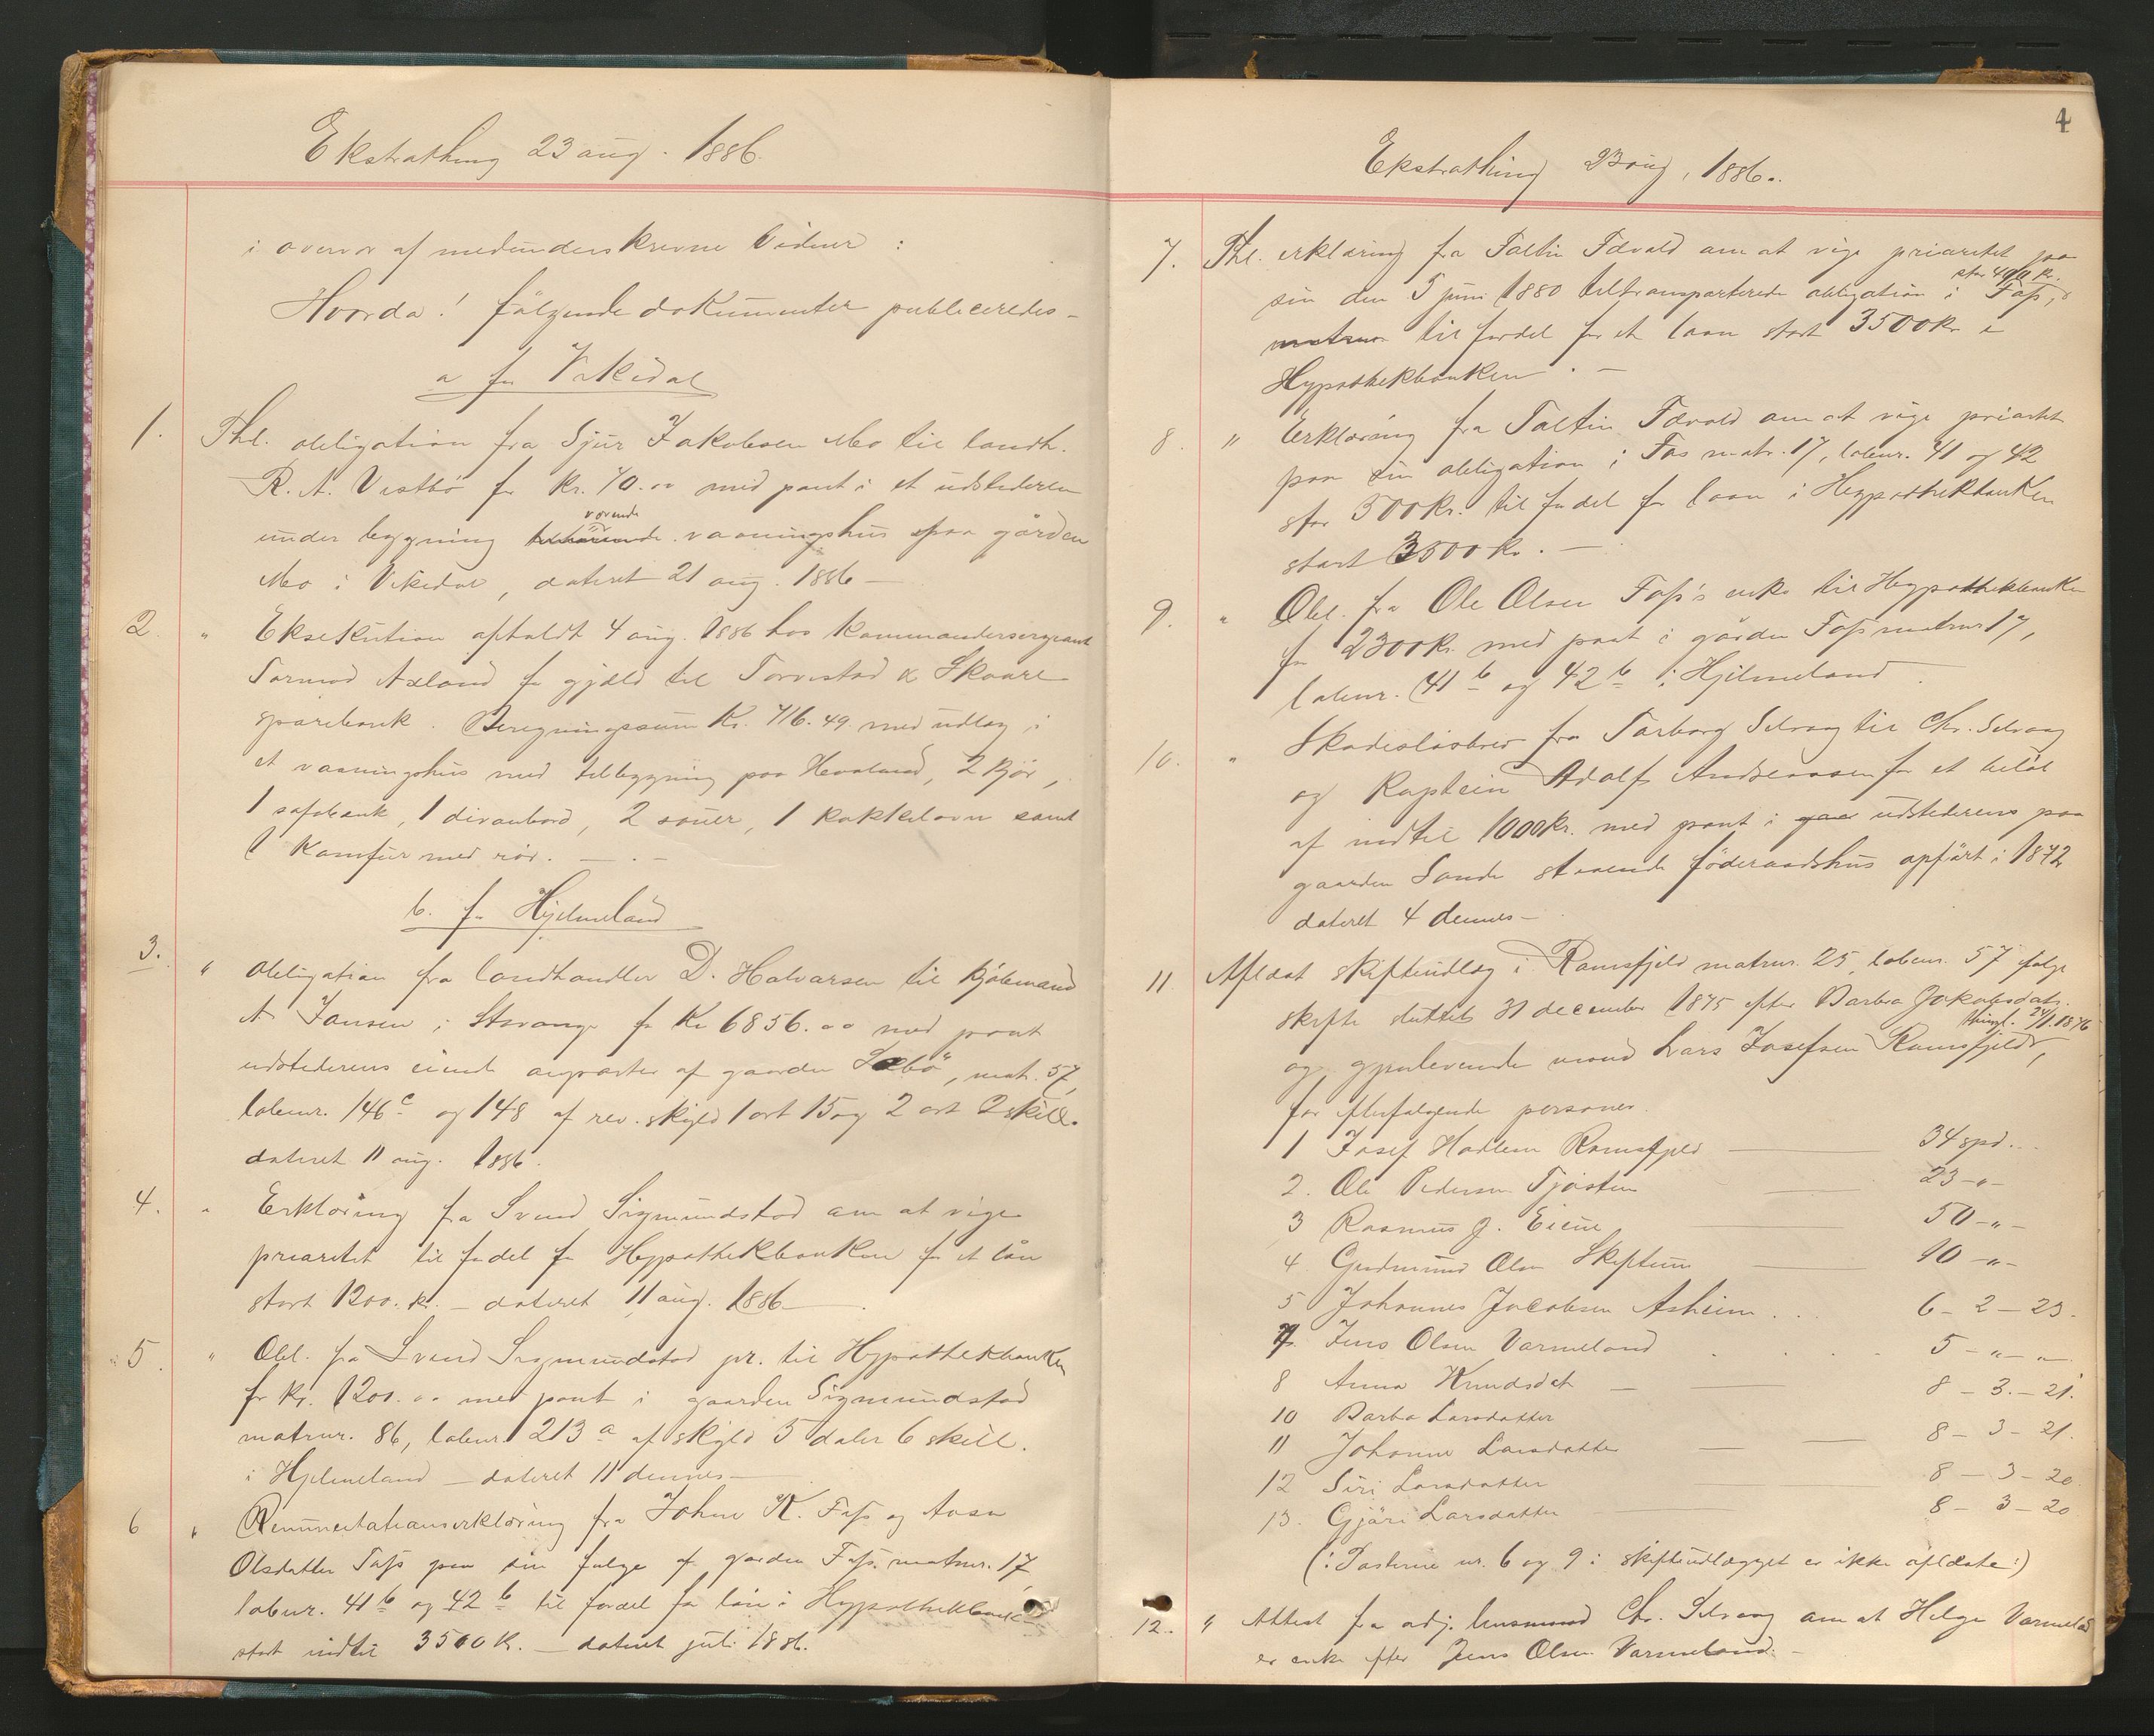 Ekstrathing 23 aug. 1886.
i overvær af medunderskrevne Vidner :
Hvorda! fölgende dokumenter publiceredes -
a for Vikedal
1. Thl. obligation fra Sjur Jakobsen Mo til landh.
R. A. Vestbö for kr. 70.00 med pant i et udstederen
under bygning tilhörende værende vaaningshus paa gården
Mo i Vikedal, dateret 21 aug. 1886 -
2. " Eksekution afholdt 4 aug. 1886 hos kommandersergeant
Tormod Axland for gjæld til Torvestad & Skaare
sparebank. Beregningssum Kr. 716.49 med udlæg i
et vaaningshus med tilbygning paa Hovland, 2 kjör,
1 sofabænk, 1 divanbord, 2 souer, 1 kakkelovn samt
1 Komfur med rör. - . -
b. for Hjelmeland
3. " obligation fra landhandler D. Halvorsen til Kjöbmand
A Jansen i Stavanger for Kr 6856.00 med pant
udstederens eiende anparter af gaarden Sæbö, mat. 57,
löbenr. 146 c og 148 af rev. skyld 1 ort 15 og 2 ort 2 skill.
dateret 11 aug. 1886.
4. " Erklæring fra Svend Sigmundstad om at vige
prioritet til fordel for Hypothekbanken for et lån
stort 1200. kr. - dateret 11 aug. 1886 -
5. " Obl. fra Svend Sigmundstad pr. til Hypothekbanken
for kr. 1200.00 med pant i gaarden Sigmundstad
matrnr. 86, löbenr. 213 a af skyld 5 daler 6 skill.
i Hjelmeland - dateret 11 dennes -
6 " Renuncitationserklæring fra Johne K. Fass og Aasa
Olsdatter Fass paa sin fulge af garden Fass matrnr. 17
löbnr. 41 b og 42 b til fordel for lån i Hypothekbank
stort indtil 3500 kr. - dateret juli 1886.
4
Ekstrathing 23 aug, 1886.
7. Thl. erklæring fra Taltin Tævold om at vige prioritet paa
sin den 5 juni 1880 tiltransporterede obligation i Fass, stor 400 kr.
matrnr til fordel for et laan stort 3500 kr i
Hypothekbanken . -
8. " Erklæring fra Taltin Tævold om at vige prioritet
paa sin obligation i Fas matr. 17, löbenr. 41 og 42
stor 500 kr. til fordel for laan i Hypothekbanken
stort 3500 kr. -
9. " Obl. fra Ole Olsen Fass's enke til Hypothekbanken
for 2300 kr. med pant i gården Fass matrnr 17,
löbenr. 41 b og 42 b i Hjelmeland
10. " Skadeslösbrev fra Torborg Selvaag til Chr. Selvaag
og Kaptein Adolf Andreassen for et belöb
af indtil 1000 kr. med pant i gaa udstederens paa
gaarden Sande staaende föderaadshus opfört i 1872
dateret 4 dennes -
11 Aflæst skifteudlæg i Ramsfjeld matrnr. 25, löbenr. 57 fölge
skifte sluttet 31 december 1875 efter Barbra Jakobsdatr.
og gjenlevende mand Lars Josefsen Ramsfjeld, thingl. 24/1.1876
for efterfølgende personer.
1 Josef Hadlem Ramsfjeld - 34 spd..
2. Ole Pedersen Tjøstein - 23 - " -
3 Rasmus J. Eiene - 50 - " -
4 Gudmund Olsen Skiftun - 10 - " -
5 Johannes Jacobsen Asheim . . 6 - 2 - 23.
7. Jens Olsen Varmeland . . . . 5 - " - "
8 Anna Knudsdat - 8 - 3. - 21.
10 Barba Larsdatter
11 Johanne Larsdatter - 8 - 3 - 21.
12 Siri Larsdatter - 8 - 3 - 20
13. Gjöri Larsdatter - 8 - 3 - 20
(: Posterne nr. 6 og 9 i skifteudlægget er ikke aflæste :)
12. " Attest fra adj. lensmand Chr. Selvaag om at Helga Varmeland
er enke efter Jens Olsen Varmeland. -